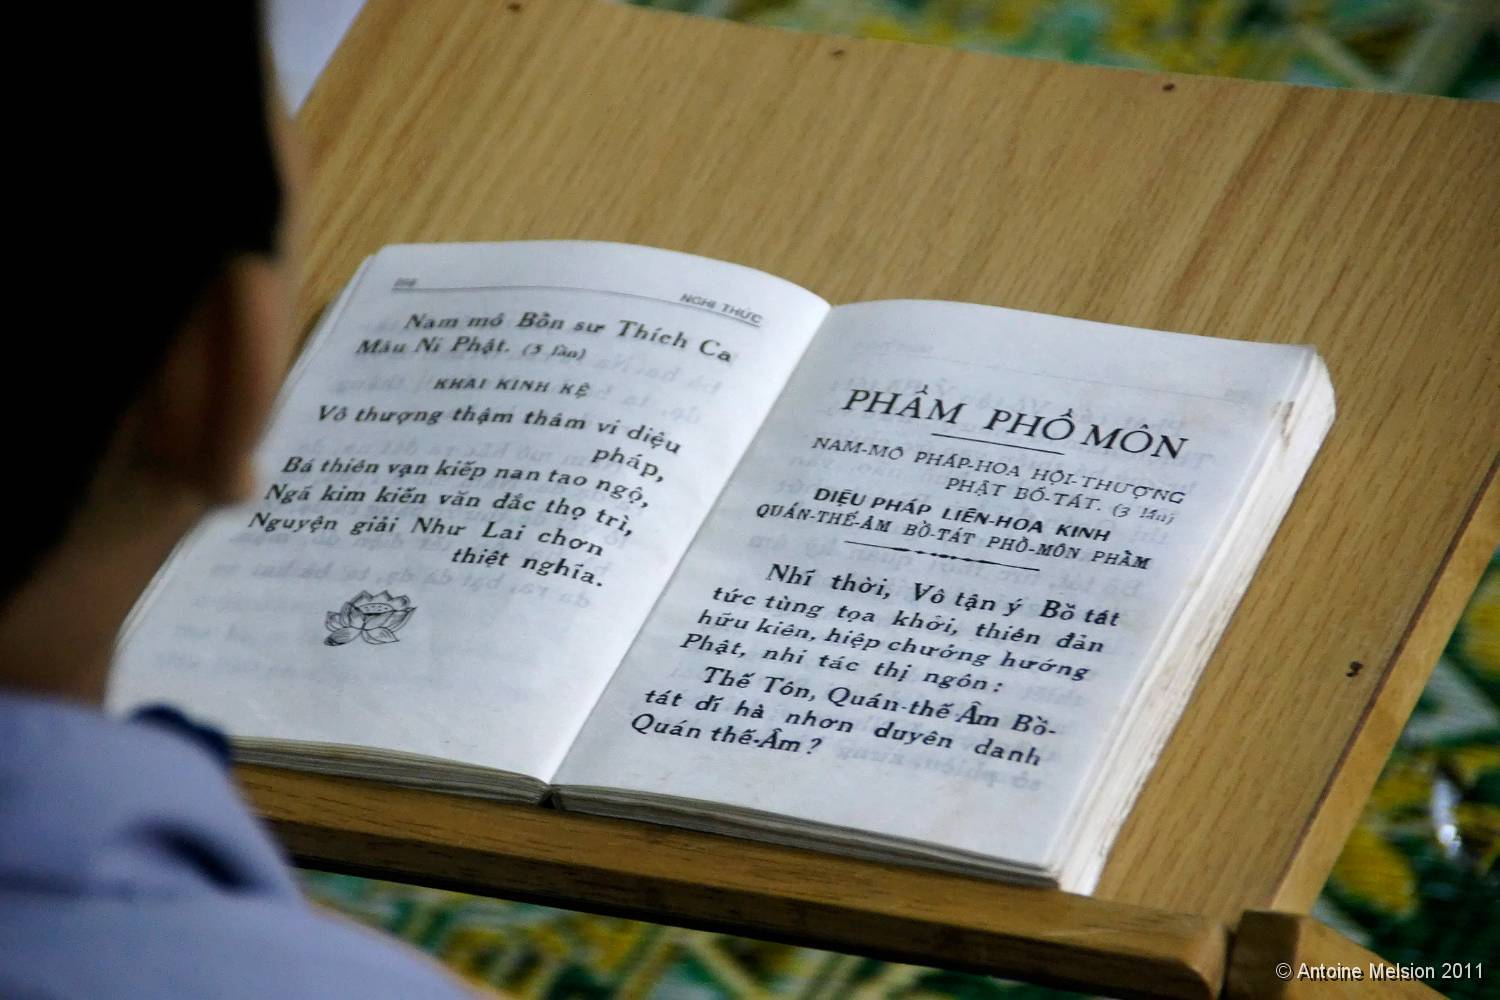 NGHI THỨC
Nam mô Bổn sư Thích Ca
Mâu Ni Phật. (3 lần)
KHAI KINH KỆ
Vô thượng thậm thâm vi diệu
pháp,
Bá thiên vạn kiếp nan tao ngộ,
Ngã kim kiến văn đắc thọ trì,
Nguyện giải Như Lai chơn
thiệt nghĩa.
PHẨM PHỔ MÔN
NAM-MÔ PHÁP-HOA HỘI-THƯỢNG
PHẬT BỒ-TÁT. (3 lần)
DIỆU PHÁP LIÊN-HOA KINH
QUÁN-THẾ-ÂM BỒ-TÁT PHỔ-MÔN PHẨM
Nhĩ thời, Vô tận ý Bồ tát
tức tùng tọa khởi, thiên đản
hữu kiên, hiệp chưởng hướng
Phật, nhi tác thị ngôn:
Thế Tôn, Quán-thế-Âm Bồ-
tát dĩ hà nhơn duyên danh
Quán thế-Âm?
© Antoine Melsion 2011